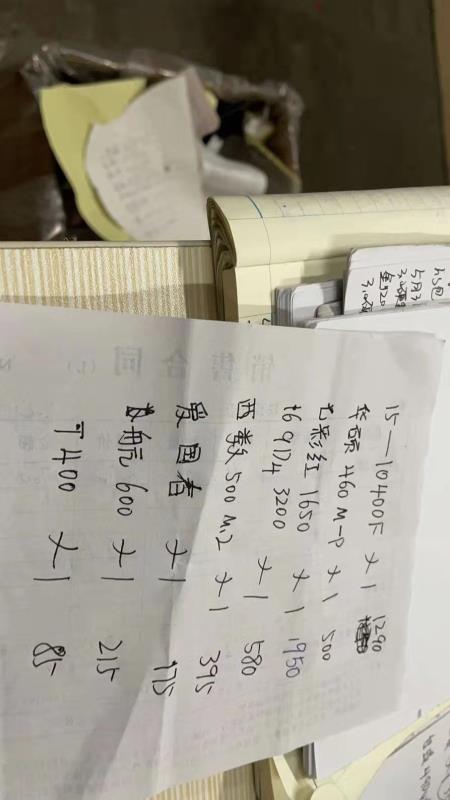 15—10400F ×1 1290
华硕 460 M-P ×1 500
七彩红 1650 ×1 1950
16G D4 3200 ×1 580
西数 500 M2 ×1 395
爱国者 ×1 175
航 600 ×1 215
T400 ×1 85
销售合同